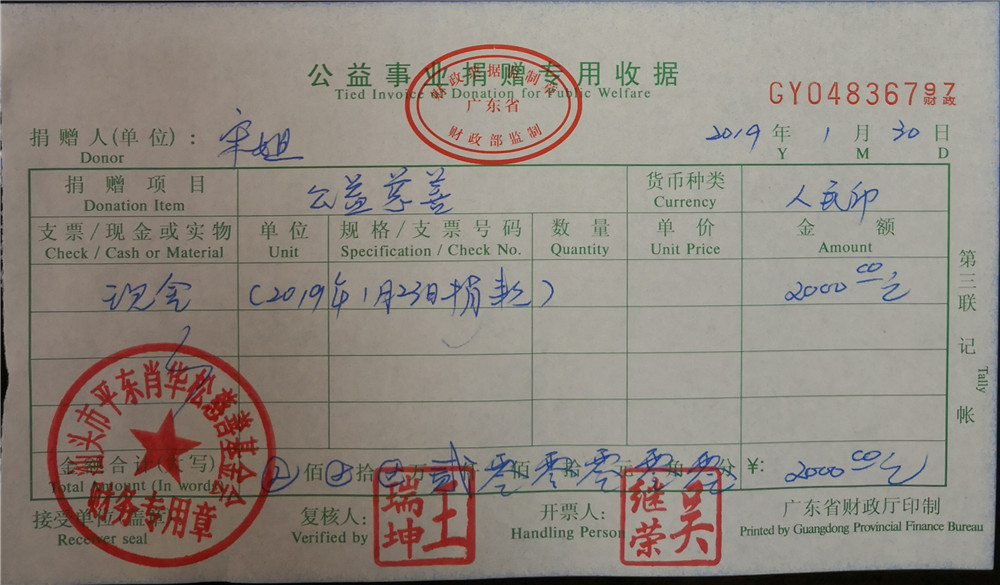 公益事业捐赠专用收据
Tied Invoice of Donation for Public Welfare
财政票据监制章
广东省
财政部监制
GY04836797
财政
捐赠人(单位): 宋姐
Donor
2019 年 1 月 30 日
Y M D
捐赠项目 公益慈善 货币种类 人民印
Donation Item Currency
支票/现金或实物 单位 规格/支票号码 数量 单价 金额
Check / Cash or Material Unit Specification / Check No. Quantity Unit Price Amount
现金 (2019年1月23日捐款) 2000 00元
第三联 记帐
Tally
金额合计(大写) ⊗ 佰 ⊗ 拾 ⊗ 万 贰 仟 零 佰 零 拾 零 元 零 角 零 分 ¥: 2000 00元
Total Amount (In words)
接受单位(盖章) 复核人: 开票人: 广东省财政厅印制
Receiver seal Verified by Handling Person Printed by Guangdong Provincial Finance Bureau
汕头市平东肖华松慈善基金会
财务专用章
王瑞坤
吴继荣